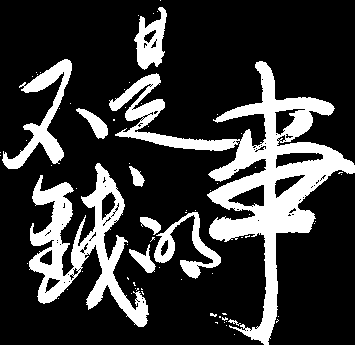 不是
钱的事